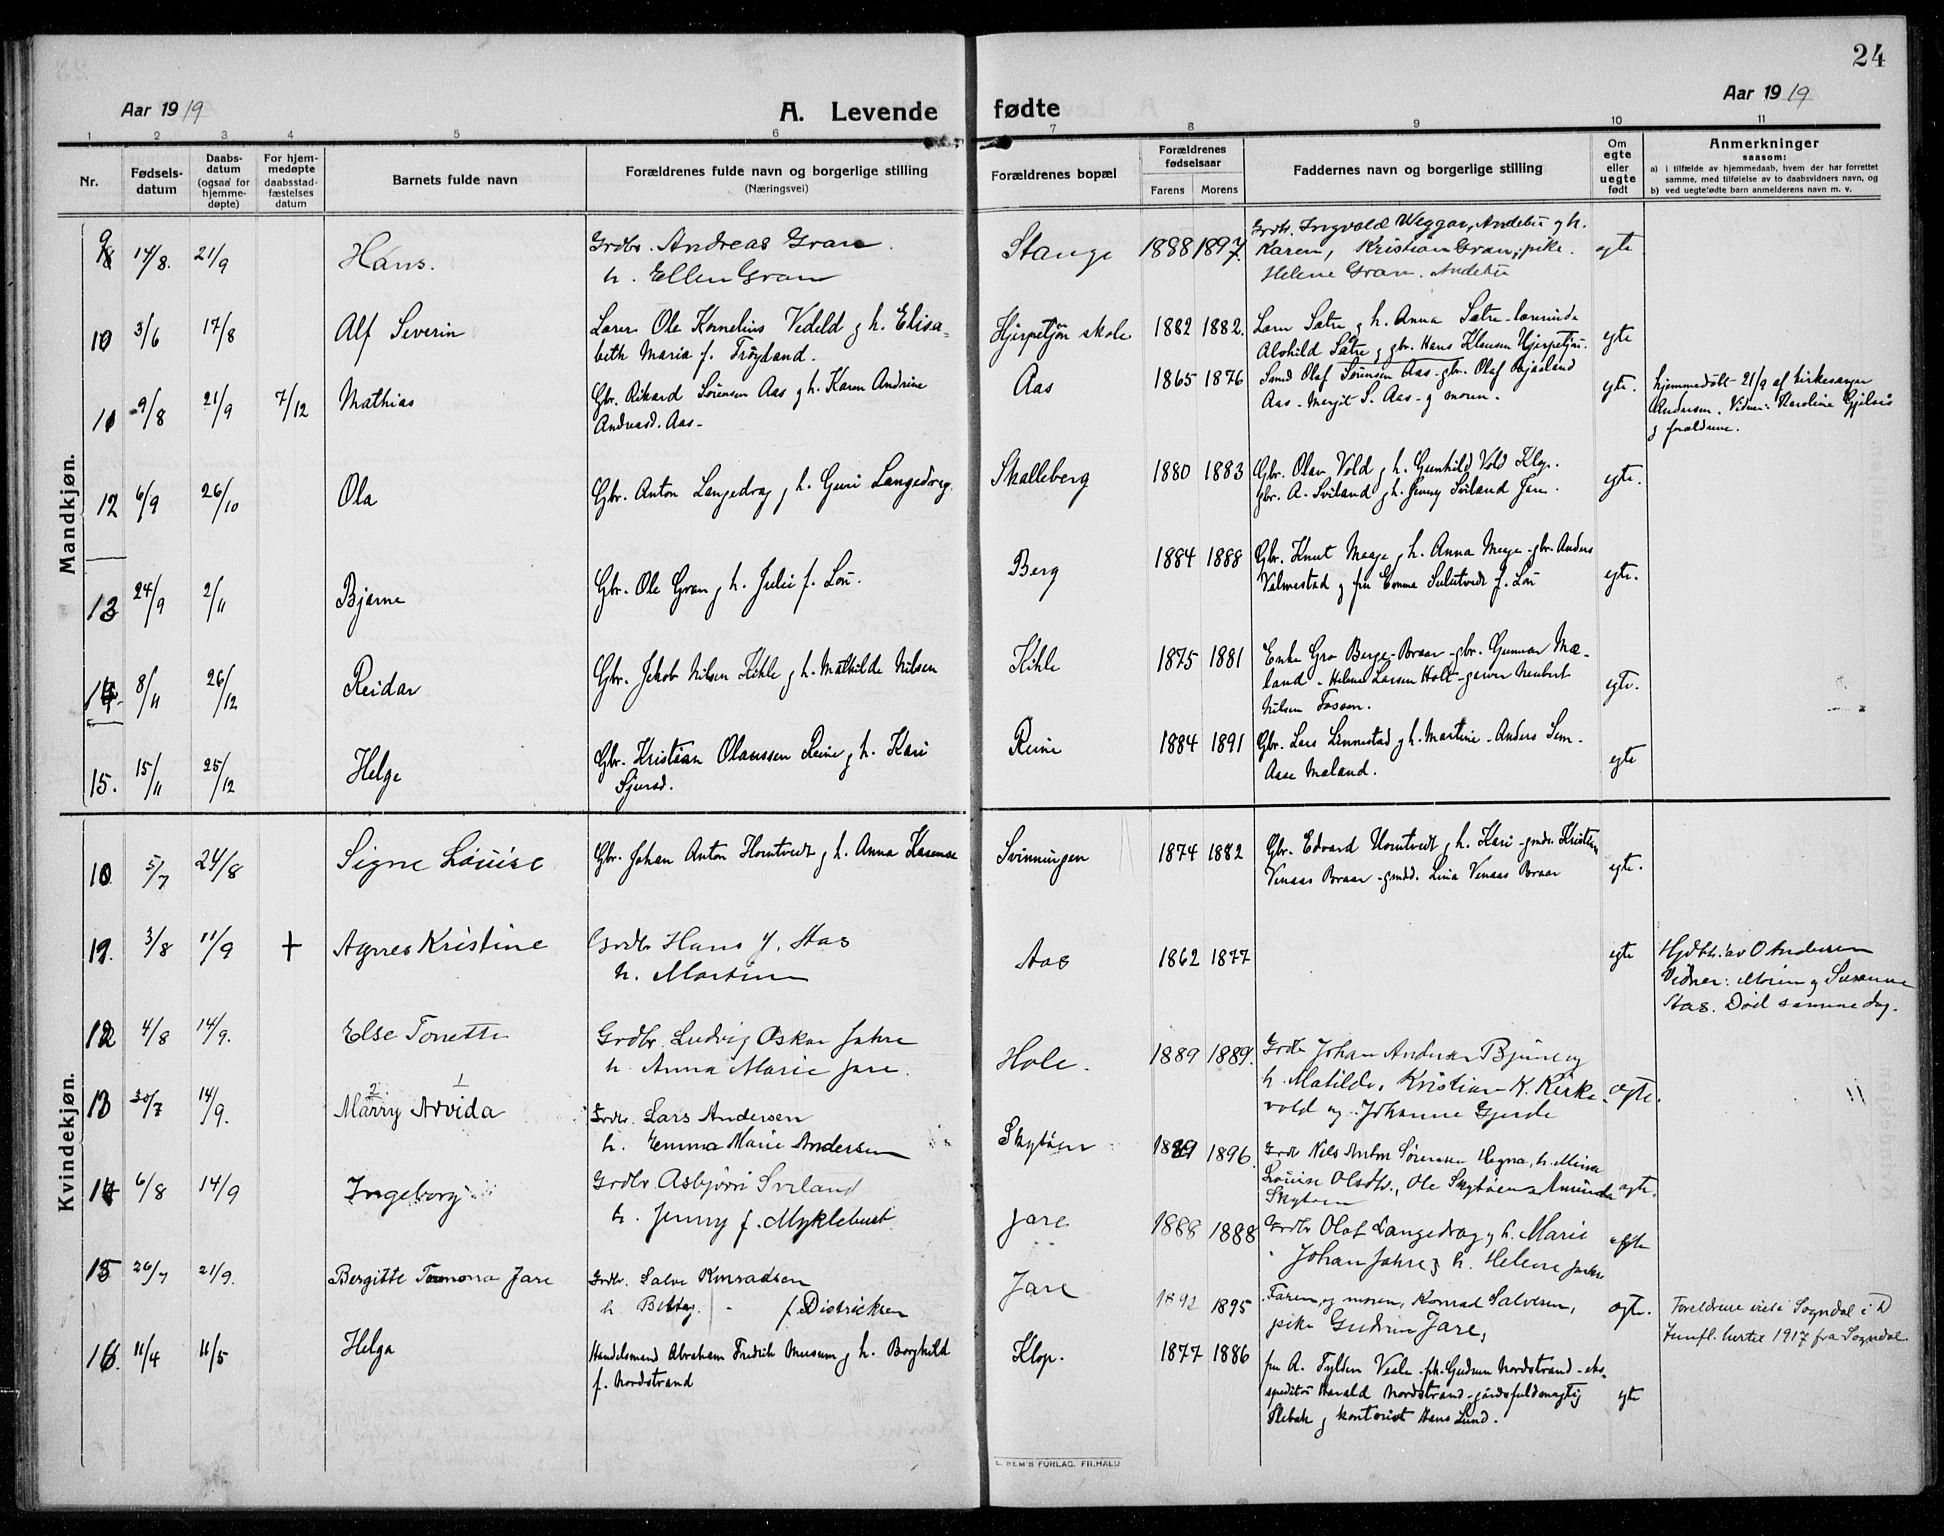 24
Aar 1919
A. Levende
fødte
Aar 1919
1 2 3 4 5 6 7 8 9 10 11
Nr.
Fødsels-
datum
Daabs-
datum
(ogsaa for
hjemme-
døpte)
For hjem-
medøpte
daabsstad-
fæstelses
datum
Barnets fulde navn
Forældrenes fulde navn og borgerlige stilling
(Næringsvei)
Forældrenes bopæl
Forældrenes
fødselsaar
Farens Morens
Faddernes navn og borgerlige stilling
Om
egte
eller
uegte
født
Anmerkninger
saasom:
a) i tilfælde av hjemmedaab, hvem der har forrettet
samme, med tilføielse av to daabsvidners navn, og
b) ved uegte fødte barn anmelderens navn m. v.
Mandkjøn.
9 14/8. 21/9 Hans. Grdbr. Andreas Gran
h. Ellen Gran
Stange 1888 1897. Grdb. Ingvald Weggar, Andebu og h.
Karen, Kristian Gran, pike
Helene Gran. Andebu
egte
10 3/6 17/8 Alf Severin Lærer Ole Kornelius Vedeld og h. Elisa-
beth Maria f. Trøyland.
Hjerpetjøn skole 1882 1882. Lærer Sætre og h. Anna Sætre - lærerinde
Alvhild Sætre og gbr. Hans Klausen Hjerpetjøn.
egte
11 9/8 21/9 7/12 Mathias Gbr. Rikard Sørensen Aas og h. Karen Andrine
Andreasd. Aas-
Aas 1865 1876 Olaf Sørensen Aas - gbr. Olaf
Aas - Margit S. Aas - og moren.
egte. hjemmedøbt 21/9 af kirkesanger
Andersen. Vidner: Karoline
og forældrene.
12 6/9 26/10 Ola Gbr. Anton Langedrag og h. Guri Langedrag.
Skalleberg 1880 1883 Gbr. Olav Vold og h. Gunhild Vold Klop.
Gbr. A. Sviland og h. Jenny Sviland Jare.
egte.
13 24/9 2/11 Bjarne Gbr. Ole Gran og h. Julie f. Lou.
Berg 1884 1888 Gbr. Knut Maage og h. Anna Maage - gbr. Anders
Valmestad og fru Emma f. Lou
egte.
14 8/11 26/12 Reidar Gbr. Jakob Nilsen Kihle og h. Mathilde Nilsen
Kihle 1875 1881 Enke Gro Berge - Braar - gbr. Gunnar Mæ-
land - Helene Larsen Holt - Neubert
Nilsen Fossen.
egte.
15. 15/11 25/12 Helge Gbr. Kristian Olaussen Reine og h. Kari
Sjursd.
Reine 1884 1891 Gbr. Lars Linnestad og h. Martine - Anders Sem-
Aase Mæland.
egte
Kvindekjøn.
10. 5/7 24/8 Signe Louise Gbr. Johan Anton Horntvedt og h. Anna
Svinningen 1874 1882 Gbr. Edvard Horntvedt og h. Kari - Kristian
Venaas Braar - Lina Venaas Braar
egte.
11. 3/8 11/9 + Agnes Kristine Grdbr Hans J. Aas
h. Martine
Aas 1862 1877 egte Hjdbt. av O Andersen
Vidner: Moren og Susanne
Aas. Død samme dag.
12 4/8 14/9. Else Tonette Grdbr. Ludvig Oskar Jahre
h. Anna Marie Jare.
Hole. 1889 1889. Grdb Johan Andersen Bjune og
h. Matilde, Kristian K. Kirke-
vold og Johanne Gjerde
egte.
13 30/7 14/9. 2 1
Marry Arvida Grdbr. Lars Andersen
h. Emma Marie Andersen
Skytøen 1889 1896. Grdb Nils Anton Sørensen Hegna, h. Mina
Louise Olsdtr., Ole Skytøen Amunda
Skytøen
egte.
14 6/8 14/9 Ingeborg Grdbr. Asbjørn Sviland
h. Jenny f. Myklebust
Jare 1888 1888 Grdbr Olaf Langedrag og h. Marie
Johan Jahre og h. Helene Jahre
egte
15 26/7 21/9. Bergitte Tomona Jare Grdbr. Salve Konradsen
h. f. Didricksen
Jare 1892 1895 Faren, og moren, Konrad Salvesen,
pike Gudrun Jare,
egte. Foreldrene viet i Sogndal i D
hertil 1917 fra Sogndal.
16. 11/4 11/5 Helga Handelsmand Abraham Fredrik Musum og h. Borghild
f. Nordstrand
Klop. 1877 1886 fru A. Tylden Vesle - frk. Gudrun Nordstrand - eks-
speditør Harald Nordstrand - gårdsfuldmægtig
Slebak og kontorist Hans Lund.
egte
E. SEM'S FORLAG, FR.HALD